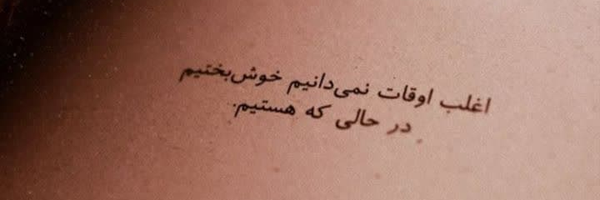 اغلب اوقات نمی‌دانیم خوش‌بختیم
در حالی که هستیم.